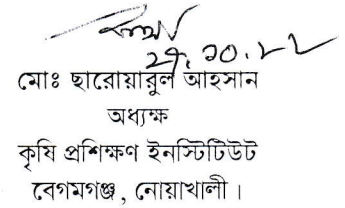 ২৭.১০.২২
মোঃ ছারোয়ারুল আহসান
অধ্যক্ষ
কৃষি প্রশিক্ষণ ইনস্টিটিউট
বেগমগঞ্জ, নোয়াখালী।